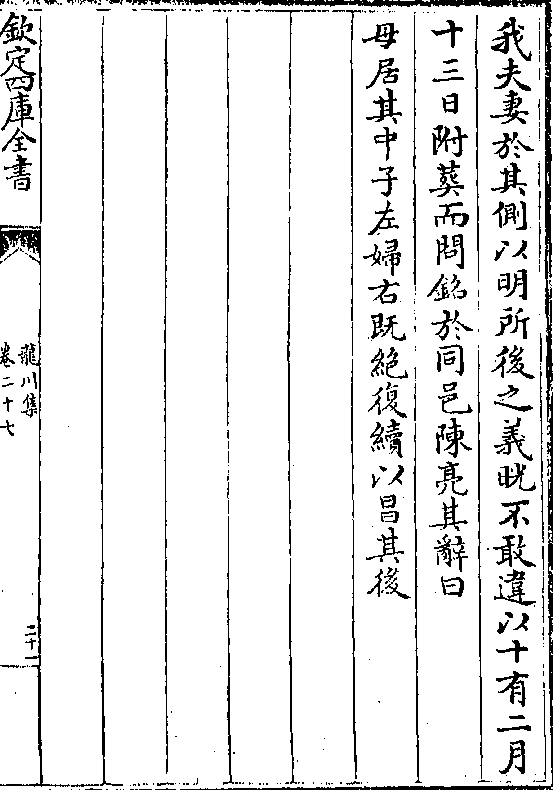 我夫妻於其側以明所後之義晄不敢違以十有二月
十三日附葬而問銘於同邑陳亮其辭曰
母居其中子左婦右既絶復續以昌其後
欽定四庫全書
龍川集
卷二十七
二十一